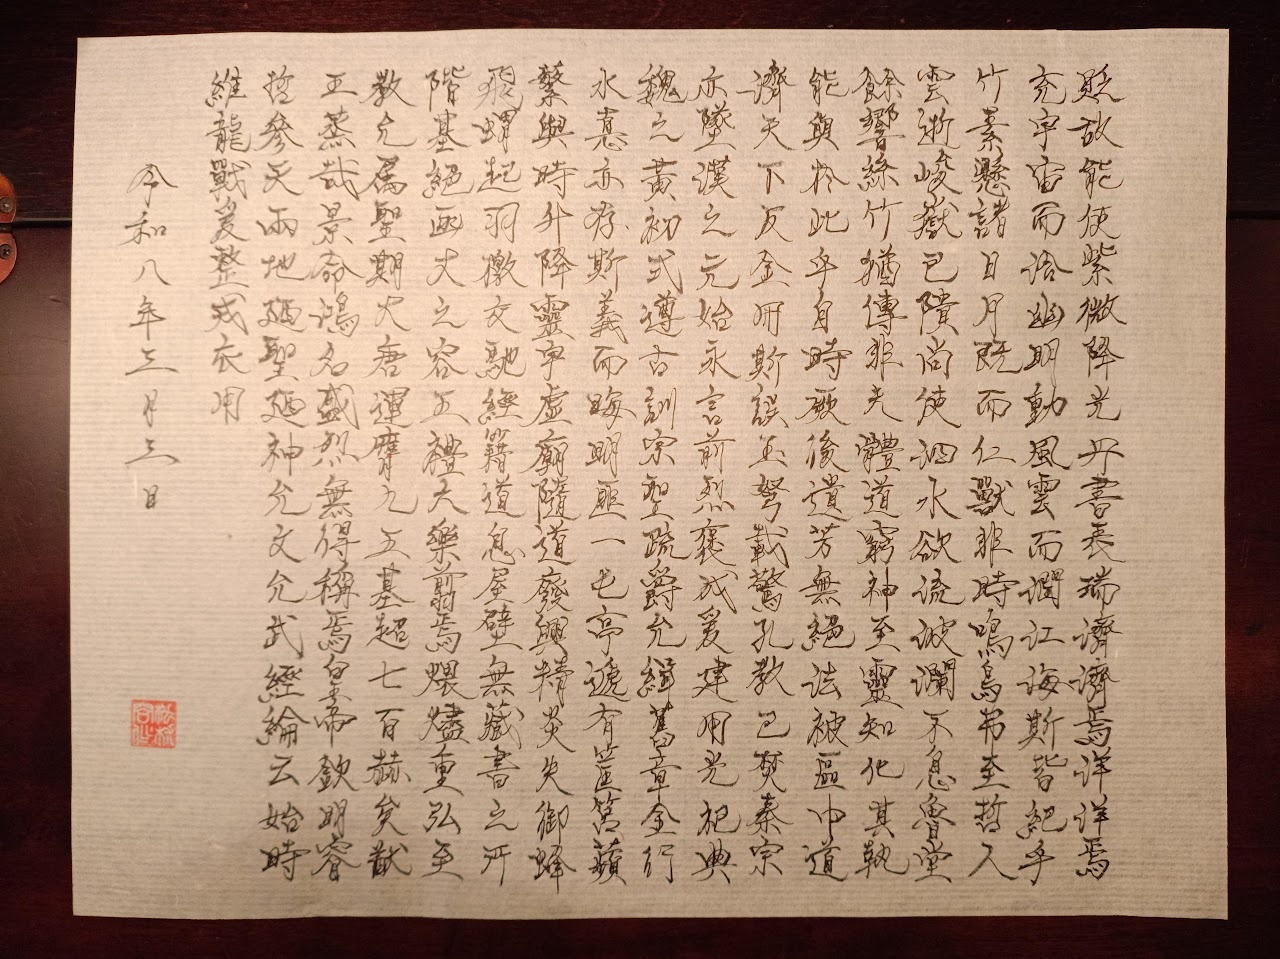 貶故能使紫微降光丹書表瑞濟濟焉洋洋焉
充宇宙而洽幽明動風雲而潤江海斯皆紀乎
竹素懸諸日月既而仁獸非時鳴鳥弗至哲人
雲逝峻嶽已隤尚使泗水欲流波瀾不息魯堂
餘響絲竹猶傳非夫體道窮神至靈知化其孰
能與於此乎自時厥後遺芳無絕法被區中道
濟天下及金冊斯誤玉弩載驚孔教已焚秦宗
亦墜漢之元始永言前烈褒成爰建用光祀典
魏之黃初式遵古訓宗聖疏爵允緝舊章金行
水悳亦存斯義而晦明匪一屯亨遞有筐筥蘋
蘩與時升降靈宇虛廟隨道廢興精炎失御蜂
飛蝟起羽檄交馳經籍道息屋壁無藏書之所
階基絕函丈之容五禮六樂翦焉煨燼重弘至
教允屬聖期大唐運膺九五基超七百赫矣猷
王蒸哉景命鴻名盛烈無得稱焉皇帝欽明睿
哲參天兩地迺聖迺神允文允武經綸云始時
維龍戰爰整戎衣用
令和八年三月三日